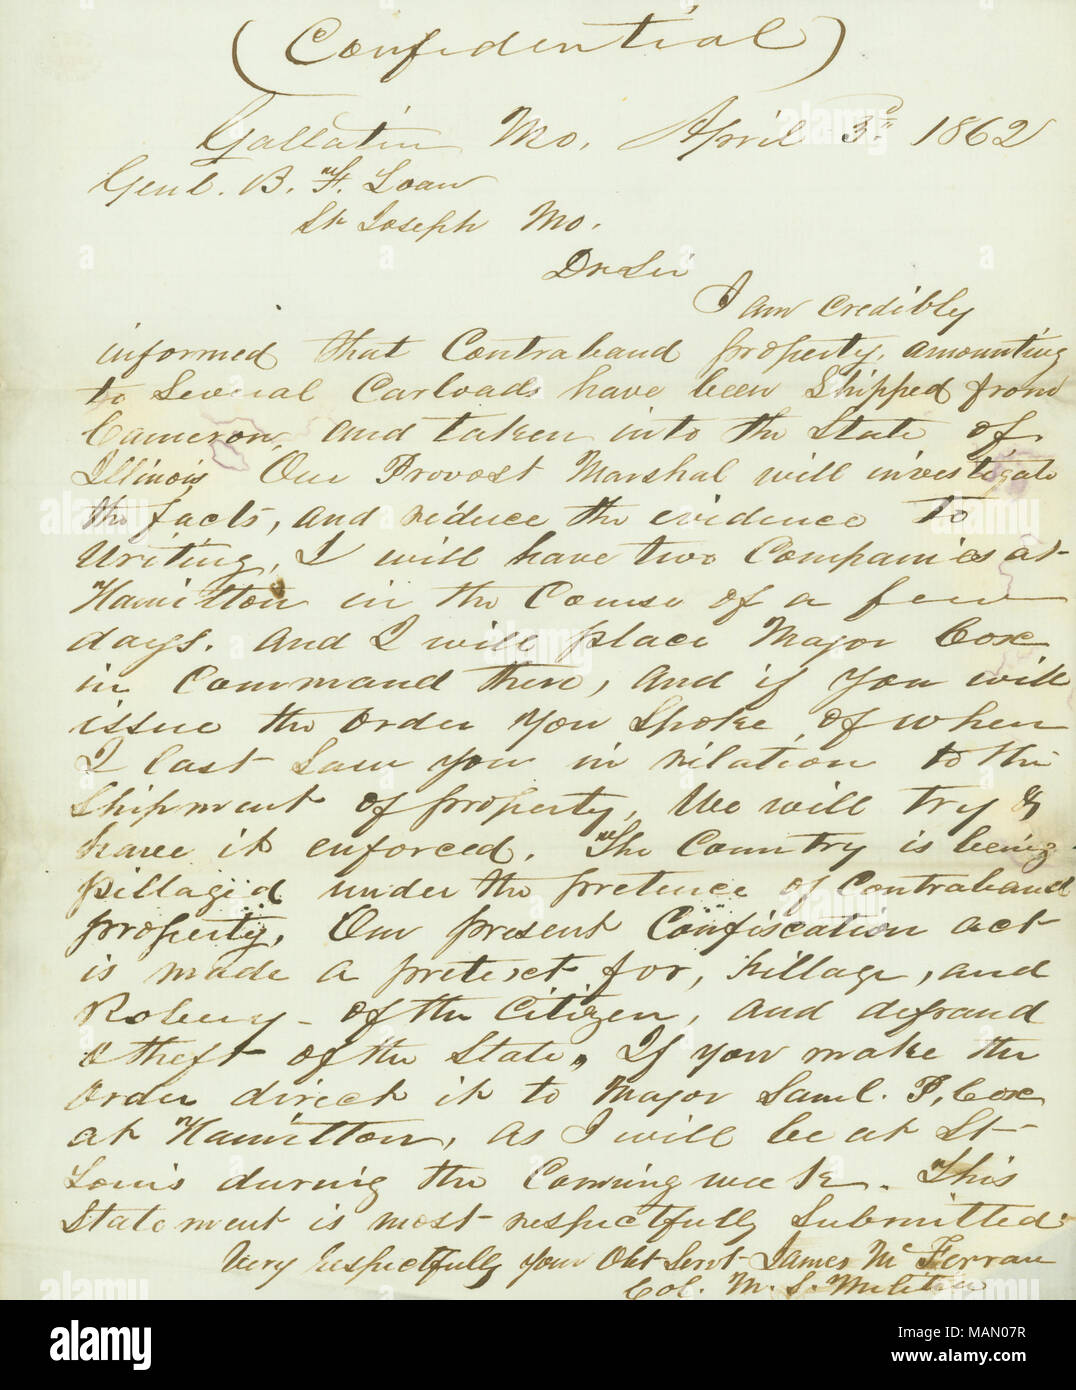 (Confidential)
Gallatin Mo, April 3d 1862
Genl. B. F. Loan
St Joseph Mo.
Dr Sir
I am credibly
informed that Contraband property, amounting
to Several Carloads have been Shipped from
Cameron, and taken into the State of
Illinois Our Provost Marshal will investigate
the facts, and reduce the evidence to
Writing, I will have two Companies at
Hamilton in the Course of a few
days. and I will place Major Cox
in Command there, and if you will
issue the order you spoke of when
I last Saw you in relation to the
Shipment of property, We will try &
have it enforced. The Country is being
pillaged under the pretence of Contraband
property, Our present Confiscation act
is made a pretext for, pillage, and
Robery - of the Citizen, and defraud
& theft of the State, If you make the
order direct it to Major Saml. P. Cox
at Hamilton, as I will be at St
Louis during the Coming week. This
Statement is most respectfully Submitted
Very respectfully your Obt Servt James McFerran
Col. M. S. Militia
alamy
Image ID: MAN07R
www.alamy.com